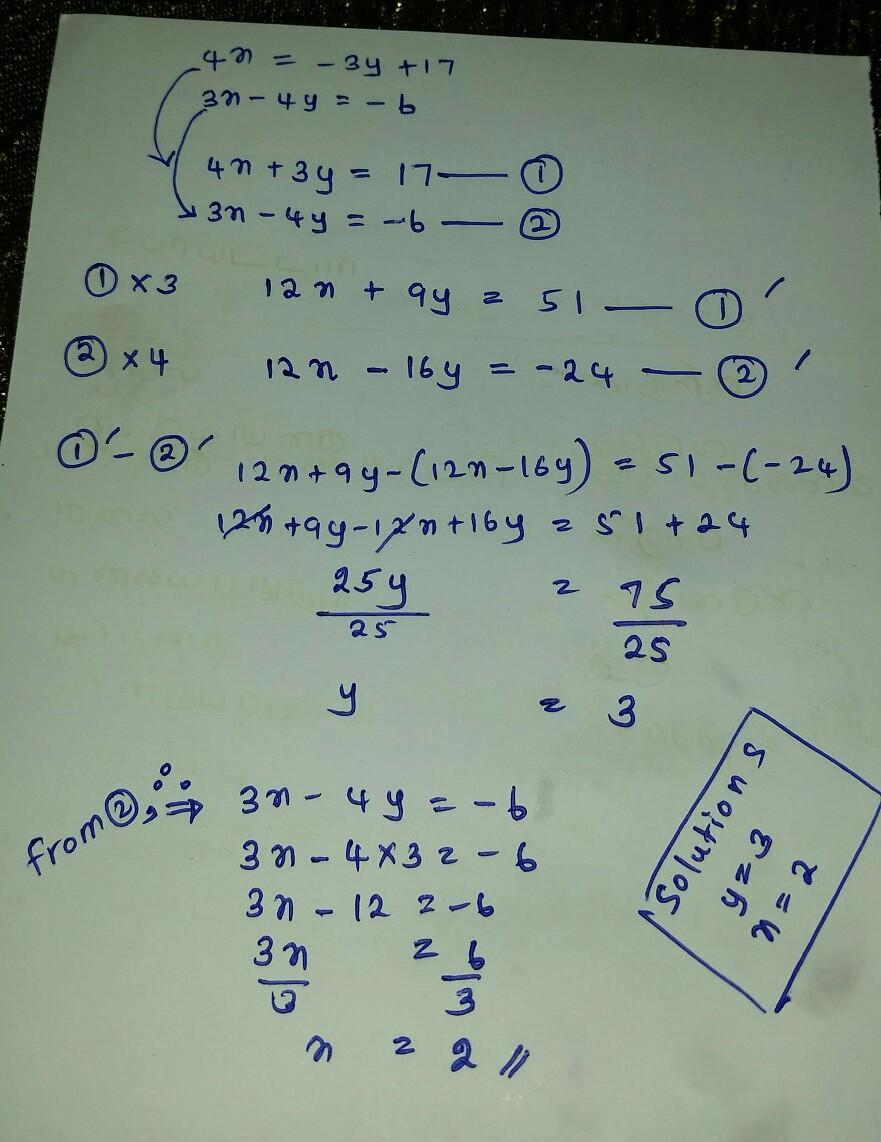 4x = -3y +17
3x - 4y = -6
4x + 3y = 17 — ①
3x - 4y = -6 — ②
① × 3 12x + 9y = 51 — ①′
② × 4 12x - 16y = -24 — ②′
①′ - ②′ 12x + 9y - (12x - 16y) = 51 - (-24)
12x + 9y - 12x + 16y = 51 + 24
25y/25 = 75/25
y = 3
from ②, ∴ ⇒ 3x - 4y = -6
3x - 4×3 = -6
3x - 12 = -6
3x/3 = 6/3
x = 2 //
Solutions
y = 3
x = 2